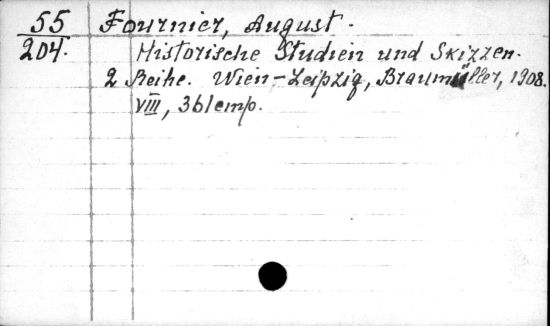 55 Fournier, August.
204. Historische Studien und Skizzen.
2 Reihe. Wien-Leipzig, Braumüller, 1908.
VIII, 361 cmp.